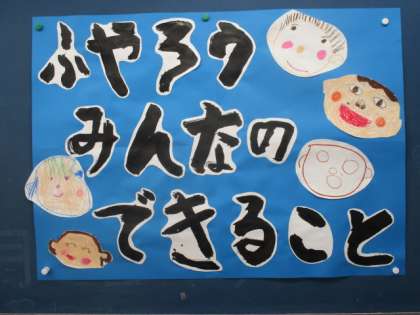 ふやろう
みんなの
できること